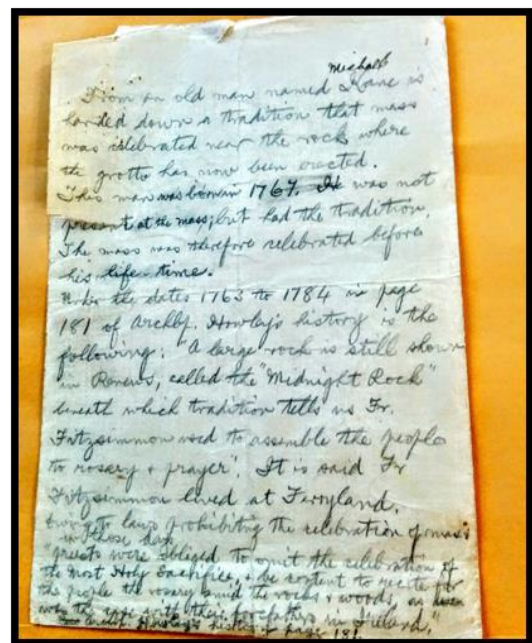 Michael
From an old man named Kane is
handed down a tradition that mass
was celebrated near the rock where
the grotto has now been erected.
This man was born in 1767. He was not
present at the mass; but had the tradition.
The mass was therefore celebrated before
his life-time.
Under the dates 1763 to 1784 in page
181 of Archbp. Howley's history is the
following: "A large rock is still shown
in Renews, called the "Midnight Rock"
beneath which tradition tells us Fr.
Fitzsimmon used to assemble the people
to rosary & prayer". It is said Fr
Fitzsimmon lived at Ferryland.
Owing to laws prohibiting the celebration of mass
in those days
priests were obliged to omit the celebration of
the Most Holy Sacrifice, & be content to recite for
the people the rosary amid the rocks & woods, as
was the case with their forefathers in Ireland."
Howley's history page 181.